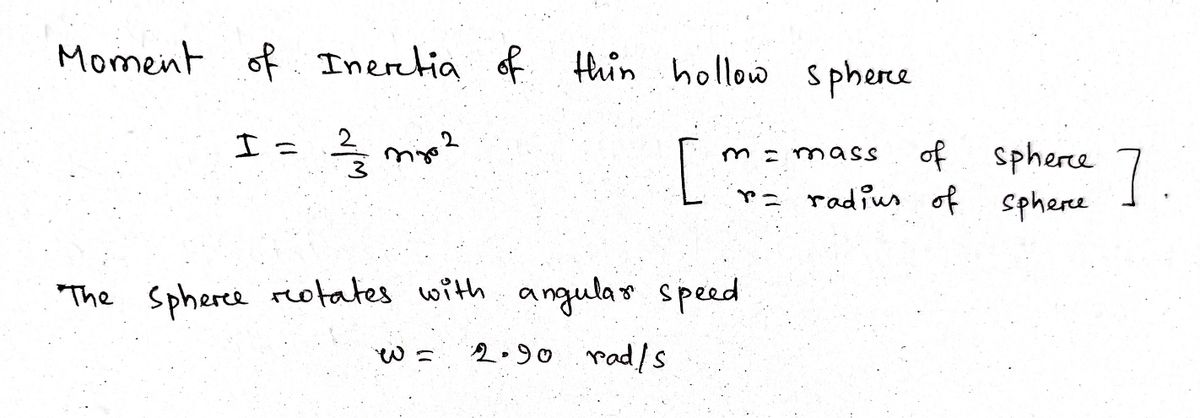 Moment of Inertia of thin hollow sphere
I = 2/3 mr²
[ m = mass of sphere
r = radius of sphere ].
The sphere rotates with angular speed
w = 2.90 rad/s